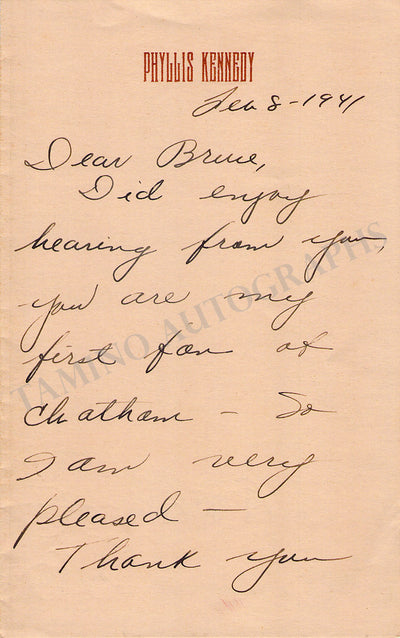 PHYLLIS KENNEDY
Feb 8-1941
Dear Bruce,
Did enjoy
hearing from you,
you are my
first fan of
Chatham - So
I am very
pleased -
Thank you
TAMINO AUTOGRAPHS